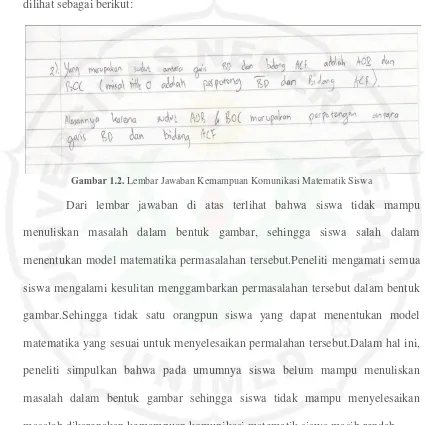 dilihat sebagai berikut:
2). Yang merupakan sudut antara garis BD dan bidang ACF adalah AOB dan
BOC (misal titik O adalah perpotong BD dan Bidang ACF).
Alasannya karena sudut AOB & BOC merupakan perpotongan antara
garis BD dan bidang ACF
Gambar 1.2. Lembar Jawaban Kemampuan Komunikasi Matematik Siswa
Dari lembar jawaban di atas terlihat bahwa siswa tidak mampu
menuliskan masalah dalam bentuk gambar, sehingga siswa salah dalam
menentukan model matematika permasalahan tersebut.Peneliti mengamati semua
siswa mengalami kesulitan menggambarkan permasalahan tersebut dalam bentuk
gambar.Sehingga tidak satu orangpun siswa yang dapat menentukan model
matematika yang sesuai untuk menyelesaikan permalahan tersebut.Dalam hal ini,
peneliti simpulkan bahwa pada umumnya siswa belum mampu menuliskan
masalah dalam bentuk gambar sehingga siswa tidak mampu menyelesaikan
masalah dikarenakan kemampuan komunikasi matematik siswa masih rendah